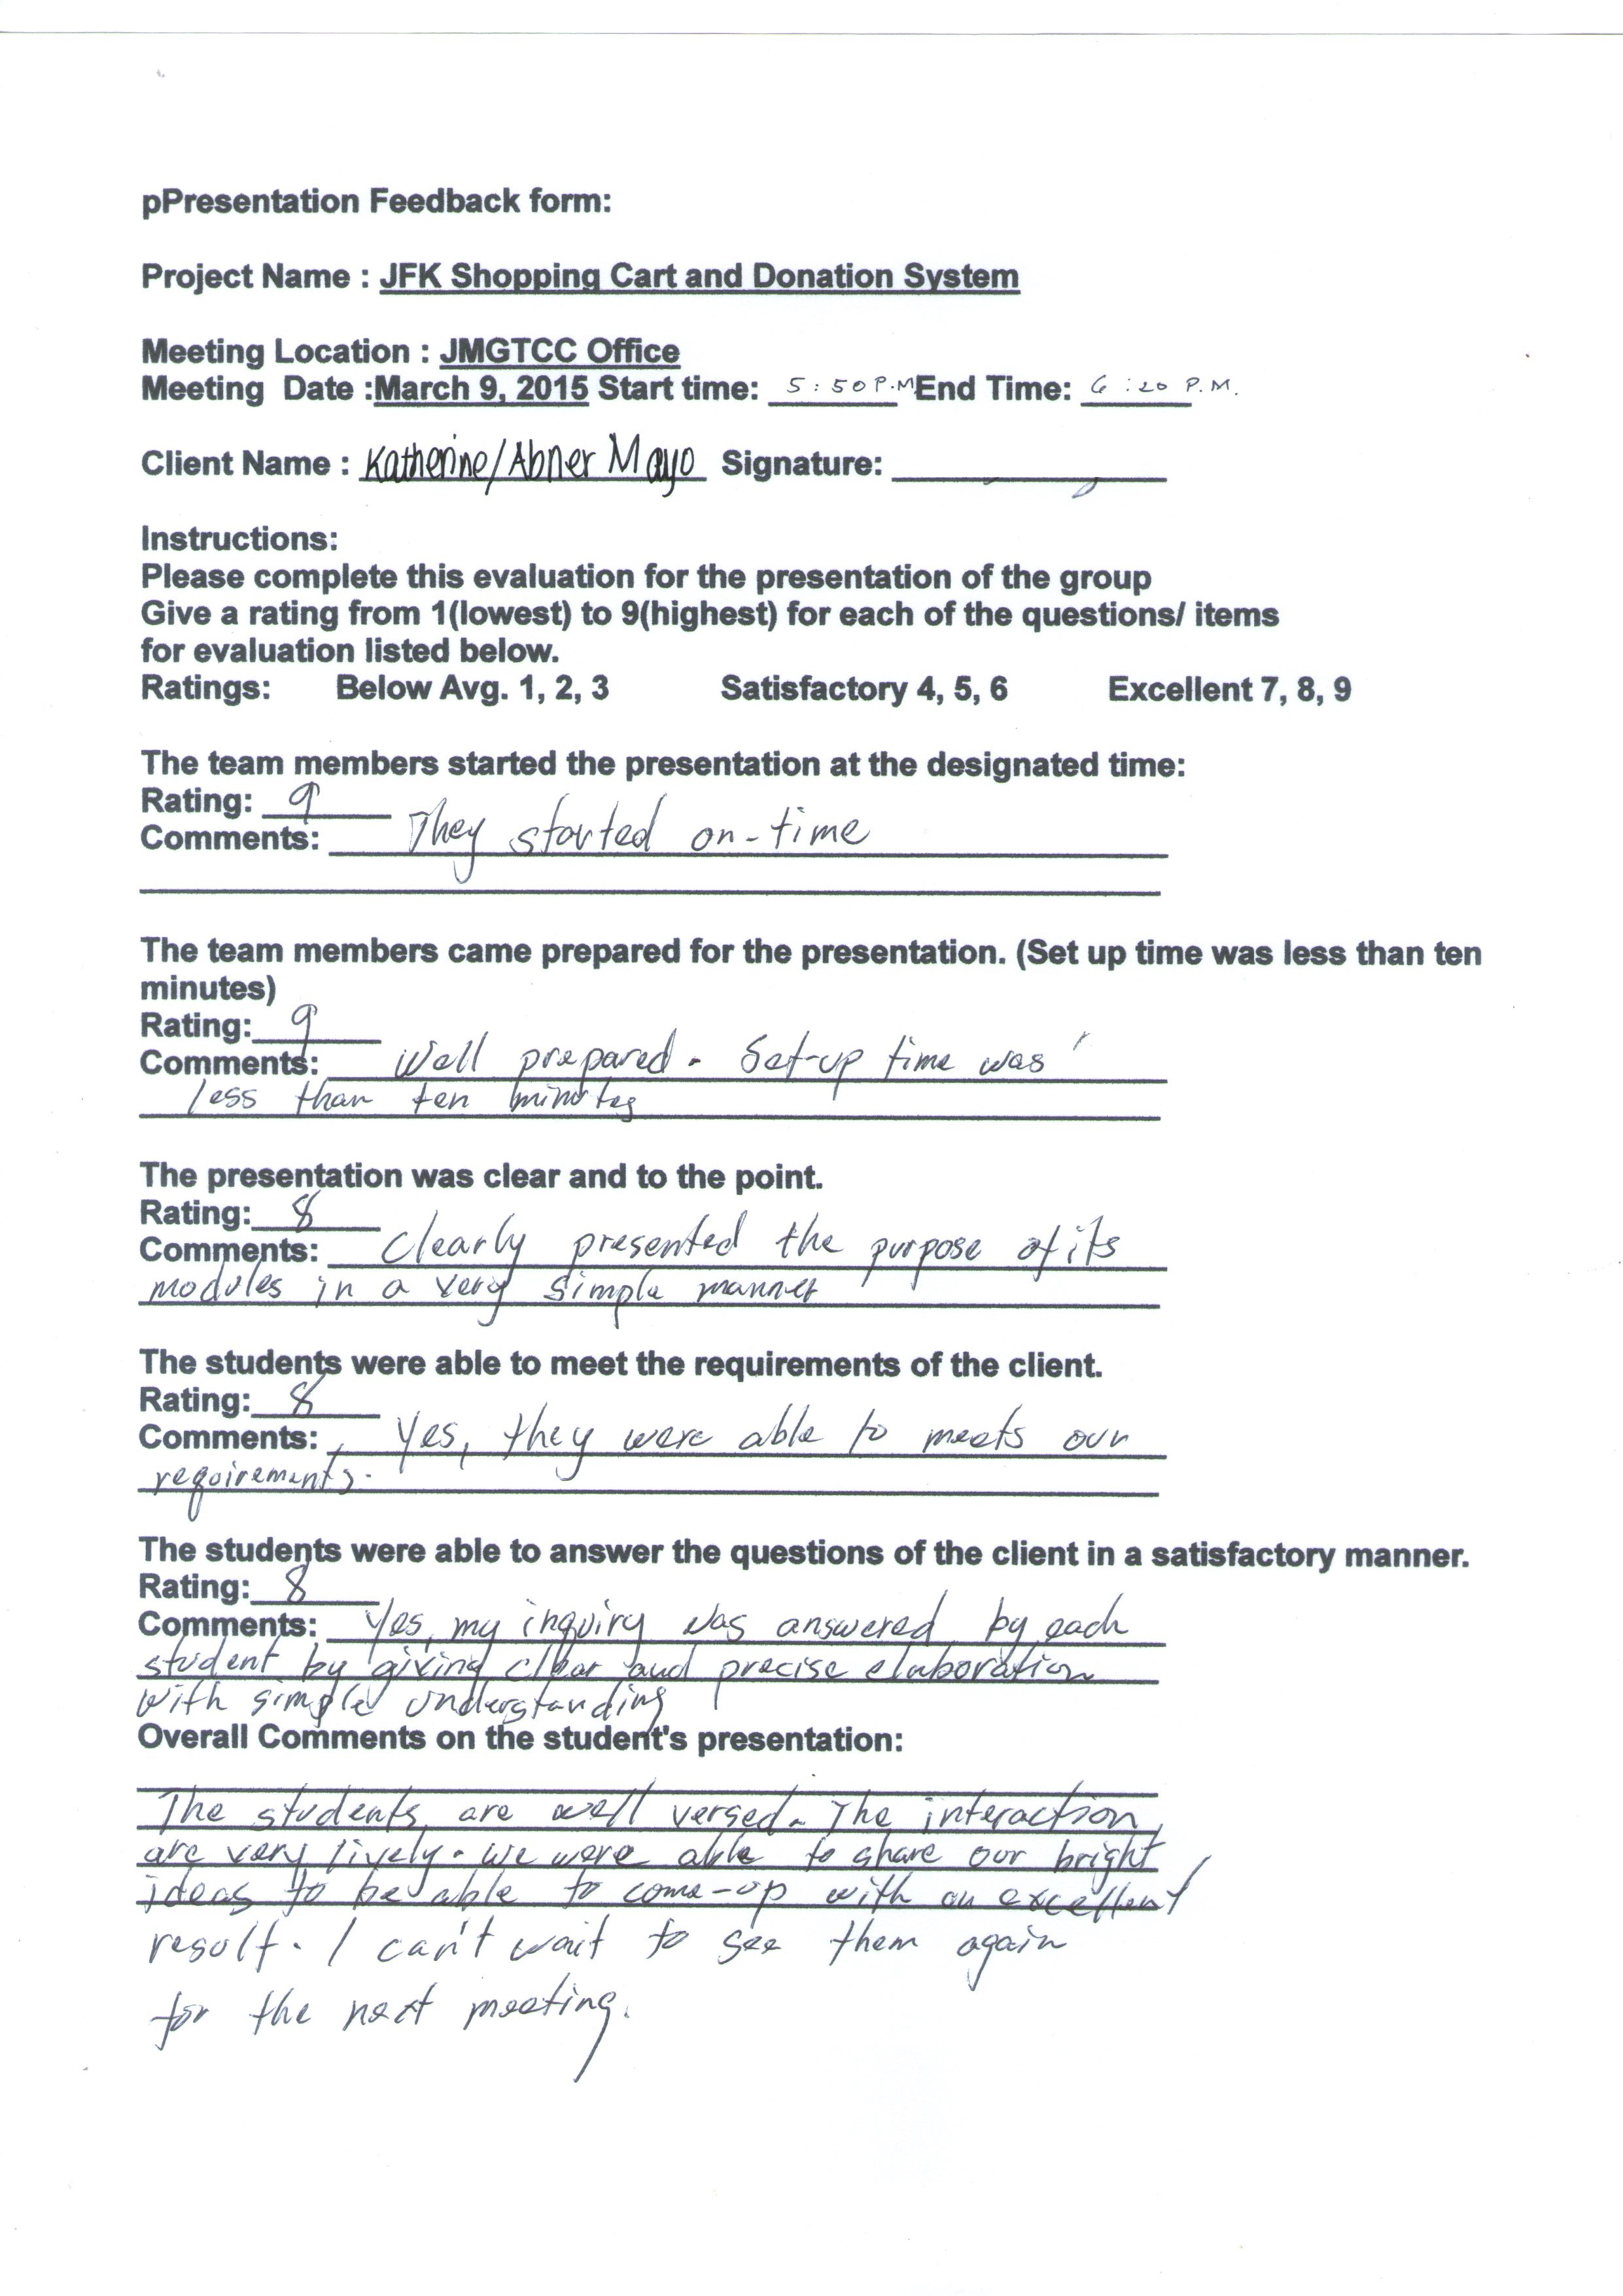 pPresentation Feedback form:
Project Name : JFK Shopping Cart and Donation System
Meeting Location : JMGTCC Office
Meeting Date :March 9, 2015 Start time: 5:50 P.M End Time: 6:20 P.M.
Client Name : Katherine/Abner Mayo Signature:
Instructions:
Please complete this evaluation for the presentation of the group
Give a rating from 1(lowest) to 9(highest) for each of the questions/ items
for evaluation listed below.
Ratings: Below Avg. 1, 2, 3 Satisfactory 4, 5, 6 Excellent 7, 8, 9
The team members started the presentation at the designated time:
Rating: 9
Comments: They started on-time
The team members came prepared for the presentation. (Set up time was less than ten
minutes)
Rating: 9
Comments: Well prepared. Set-up time was
less than ten minutes
The presentation was clear and to the point.
Rating: 8
Comments: Clearly presented the purpose of its
modules in a very simple manner
The students were able to meet the requirements of the client.
Rating: 8
Comments: Yes, they were able to meets our
requirements.
The students were able to answer the questions of the client in a satisfactory manner.
Rating: 8
Comments: Yes, my inquiry was answered by each
student by giving clear and precise elaboration
with simple understanding
Overall Comments on the student's presentation:
The students are well versed. The interaction
are very lively. We were able to share our bright
ideas to be able to come-up with an excellent
result. I can't wait to see them again
for the next meeting.